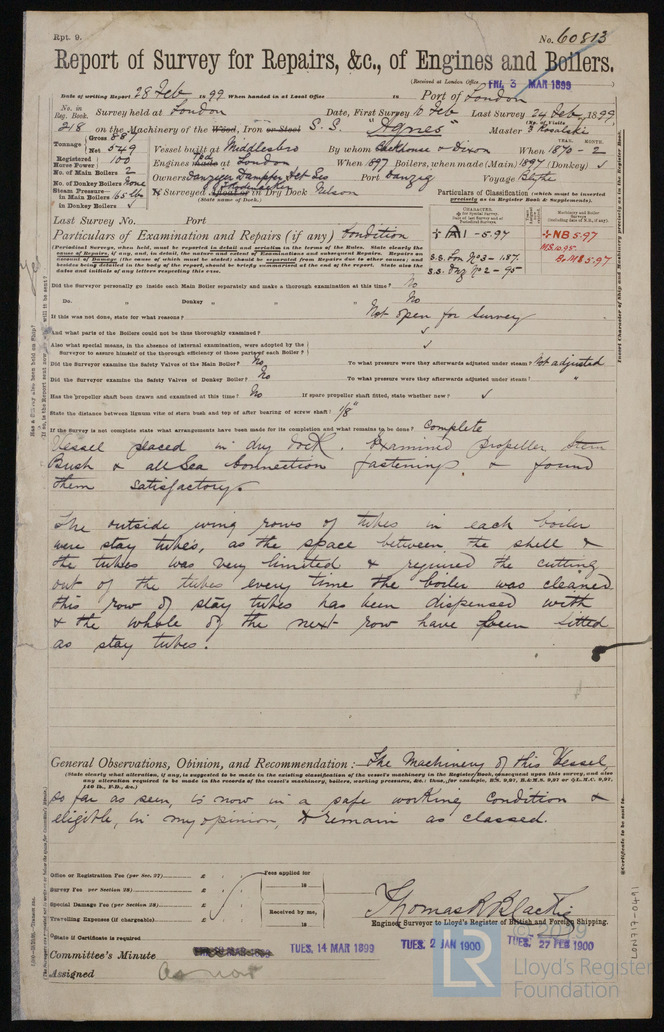 Rpt. 9.
No. 60813
Report of Survey for Repairs, &c., of Engines and Boilers.
(Received at London Office FRI. 3 MAR 1899)
Date of writing Report 28 Feb 1899 When handed in at Local Office 18 Port of London
No. in Reg. Book. Survey held at London Date, First Survey 10 Feb Last Survey 24 Feb 1899
218 on the Machinery of the Wood, Iron or Steel S. S. "Agnes" Master
Tonnage Gross 881 Net 549
Vessel built at Middlesbro By whom Backhouse & Dixon When 1870 - 2
Registered Horse Power 100
Engines made at London When 1897 Boilers, when made (Main) 1897 (Donkey) ✓
No. of Main Boilers 2
No. of Donkey Boilers None
Owners Danziger Dampfer Act Ges Port Danzig Voyage Blyth
Steam Pressure in Main Boilers 65 lb
in Donkey Boilers ✓
If Surveyed Afloat or in Dry Dock Nelson
(State name of Dock.)
Particulars of Classification (which must be inserted precisely as in Register Book & Supplements).
Last Survey No. Port
Particulars of Examination and Repairs (if any) Condition
A 1 - 5.97
NB 5.97
MS. 10.95.
B&MS 5.97
S.S. Lon No 3 - 1.87.
S.S. Dzg No 2 - 95
Did the Surveyor personally go inside each Main Boiler separately and make a thorough examination at this time? No
Do. " Donkey " " " No
If this was not done, state for what reasons? Not open for survey
And what parts of the Boilers could not be thus thoroughly examined? ✓
Also what special means, in the absence of internal examination, were adopted by the
Surveyor to assure himself of the thorough efficiency of those parts of each Boiler? ✓
Did the Surveyor examine the Safety Valves of the Main Boiler? No To what pressure were they afterwards adjusted under steam? Not adjusted
Did the Surveyor examine the Safety Valves of Donkey Boiler? No To what pressure were they afterwards adjusted under steam? "
Has the propeller shaft been drawn and examined at this time? No If spare propeller shaft fitted, state whether new? ✓
State the distance between lignum vitæ of stern bush and top of after bearing of screw shaft: 1/8"
If the Survey is not complete state what arrangements have been made for its completion and what remains to be done? Complete
Vessel placed in dry dock. Examined propeller Stern
Bush & all Sea Connection fastenings, & found
them satisfactory.
The outside wing rows of tubes in each boiler
were stay tubes, as the space between the shell &
the tubes was very limited & required the cutting
out of the tubes every time the boiler was cleaned
this row of stay tubes has been dispensed with
& the whole of the next row have been fitted
as stay tubes.
General Observations, Opinion, and Recommendation:- The Machinery of this Vessel,
(State clearly what alteration, if any, is suggested to be made in the existing classification of the vessel's machinery in the Register Book, consequent upon this survey, and also
so far as seen, is now in a safe working condition &
eligible, in my opinion, to remain as classed.
Office or Registration Fee (per Sec. 27) £
Survey Fee per Section 28) £
Special Damage Fee (per Section 28) £
Travelling Expenses (if chargeable) £
Fees applied for
18
Received by me,
18
Thomas R Blackie
Engineer Surveyor to Lloyd's Register of British and Foreign Shipping.
State if Certificate is required
Committee's Minute TUES. 14 MAR 1899 TUES. 2 JAN 1900 TUES. 27 FEB 1900
Assigned As now
LON717-0491
© 2019
LR
Lloyd's Register
Foundation